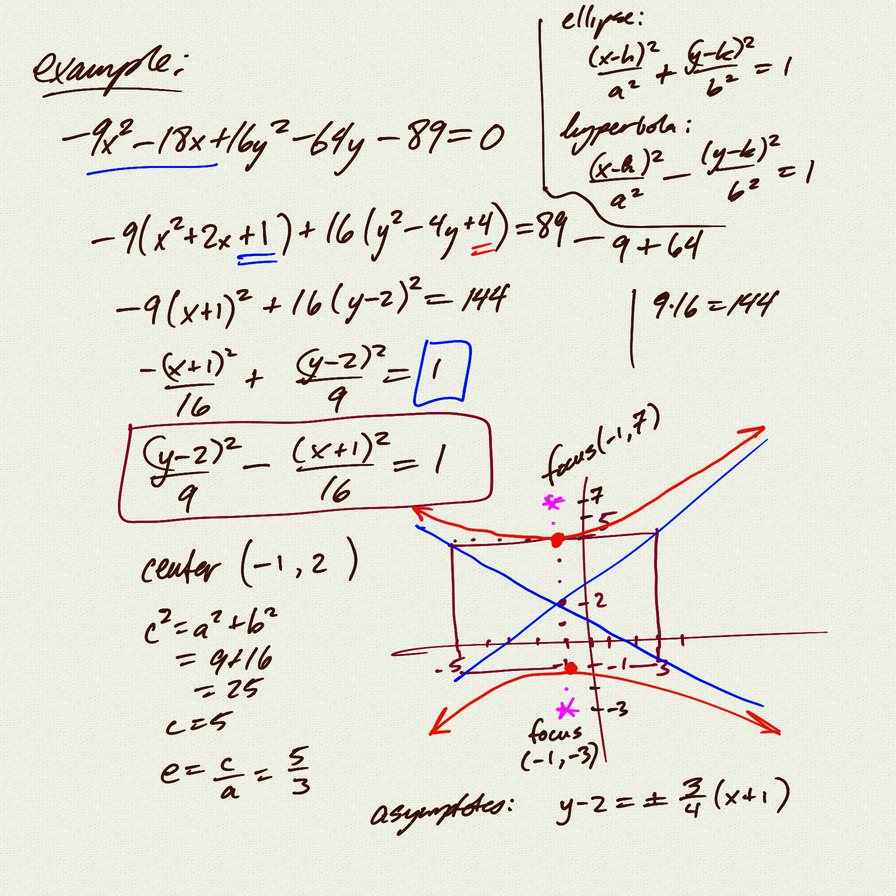 example:
-9x² - 18x + 16y² - 64y - 89 = 0
ellipse:
(x-h)²/a² + (y-k)²/b² = 1
hyperbola:
(x-h)²/a² - (y-k)²/b² = 1
-9(x² + 2x + 1) + 16(y² - 4y + 4) = 89 - 9 + 64
-9(x+1)² + 16(y-2)² = 144
9·16 = 144
-(x+1)²/16 + (y-2)²/9 = 1
(y-2)²/9 - (x+1)²/16 = 1
center (-1, 2)
c² = a² + b²
= 9 + 16
= 25
c = 5
e = c/a = 5/3
focus (-1, 7)
7
5
2
-5
-1
-1
3
-3
focus
(-1, -3)
asymptotes: y - 2 = ± 3/4 (x+1)